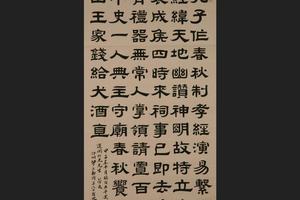 孔子作春秋制孝經演易繫
經緯天地幽讚神明故特立
褒成侯四時來祠事已即去
有禮器無常人掌領請置百
史一人典主守廟春秋饗
出王家錢給犬酒直